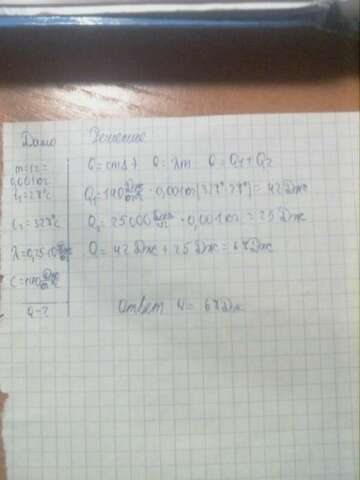 Дано
m=1г=
0,001кг
t₁=27°C
t₂=327°C
λ=0,25·10⁵ Дж/кг
C=140 Дж/кг°C
Q-?
Решение
Q=cmΔt Q=λm Q=Q₁+Q₂
Q₁=140 Дж/кг°C · 0,001кг(327°-27°)=42Дж
Q₂=25000 Дж/кг · 0,001кг=25Дж
Q=42Дж+25Дж=67Дж
Ответ Q=67Дж